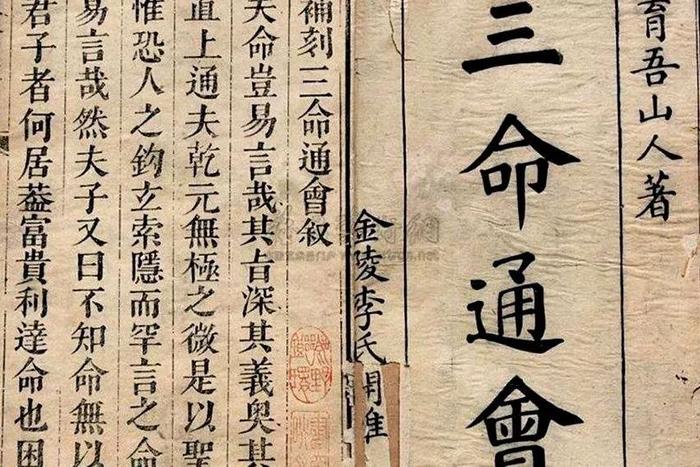 育吾山人著
三命通會
金陵李氏
補刻三命通會叙
夫命豈易言哉其旨深其義奥其
直上通夫乾元無極之微是以聖
惟恐人之鈎立索隱而罕言之命
易言哉然夫子又曰不知命無以
君子者何居葢富貴利達命也困